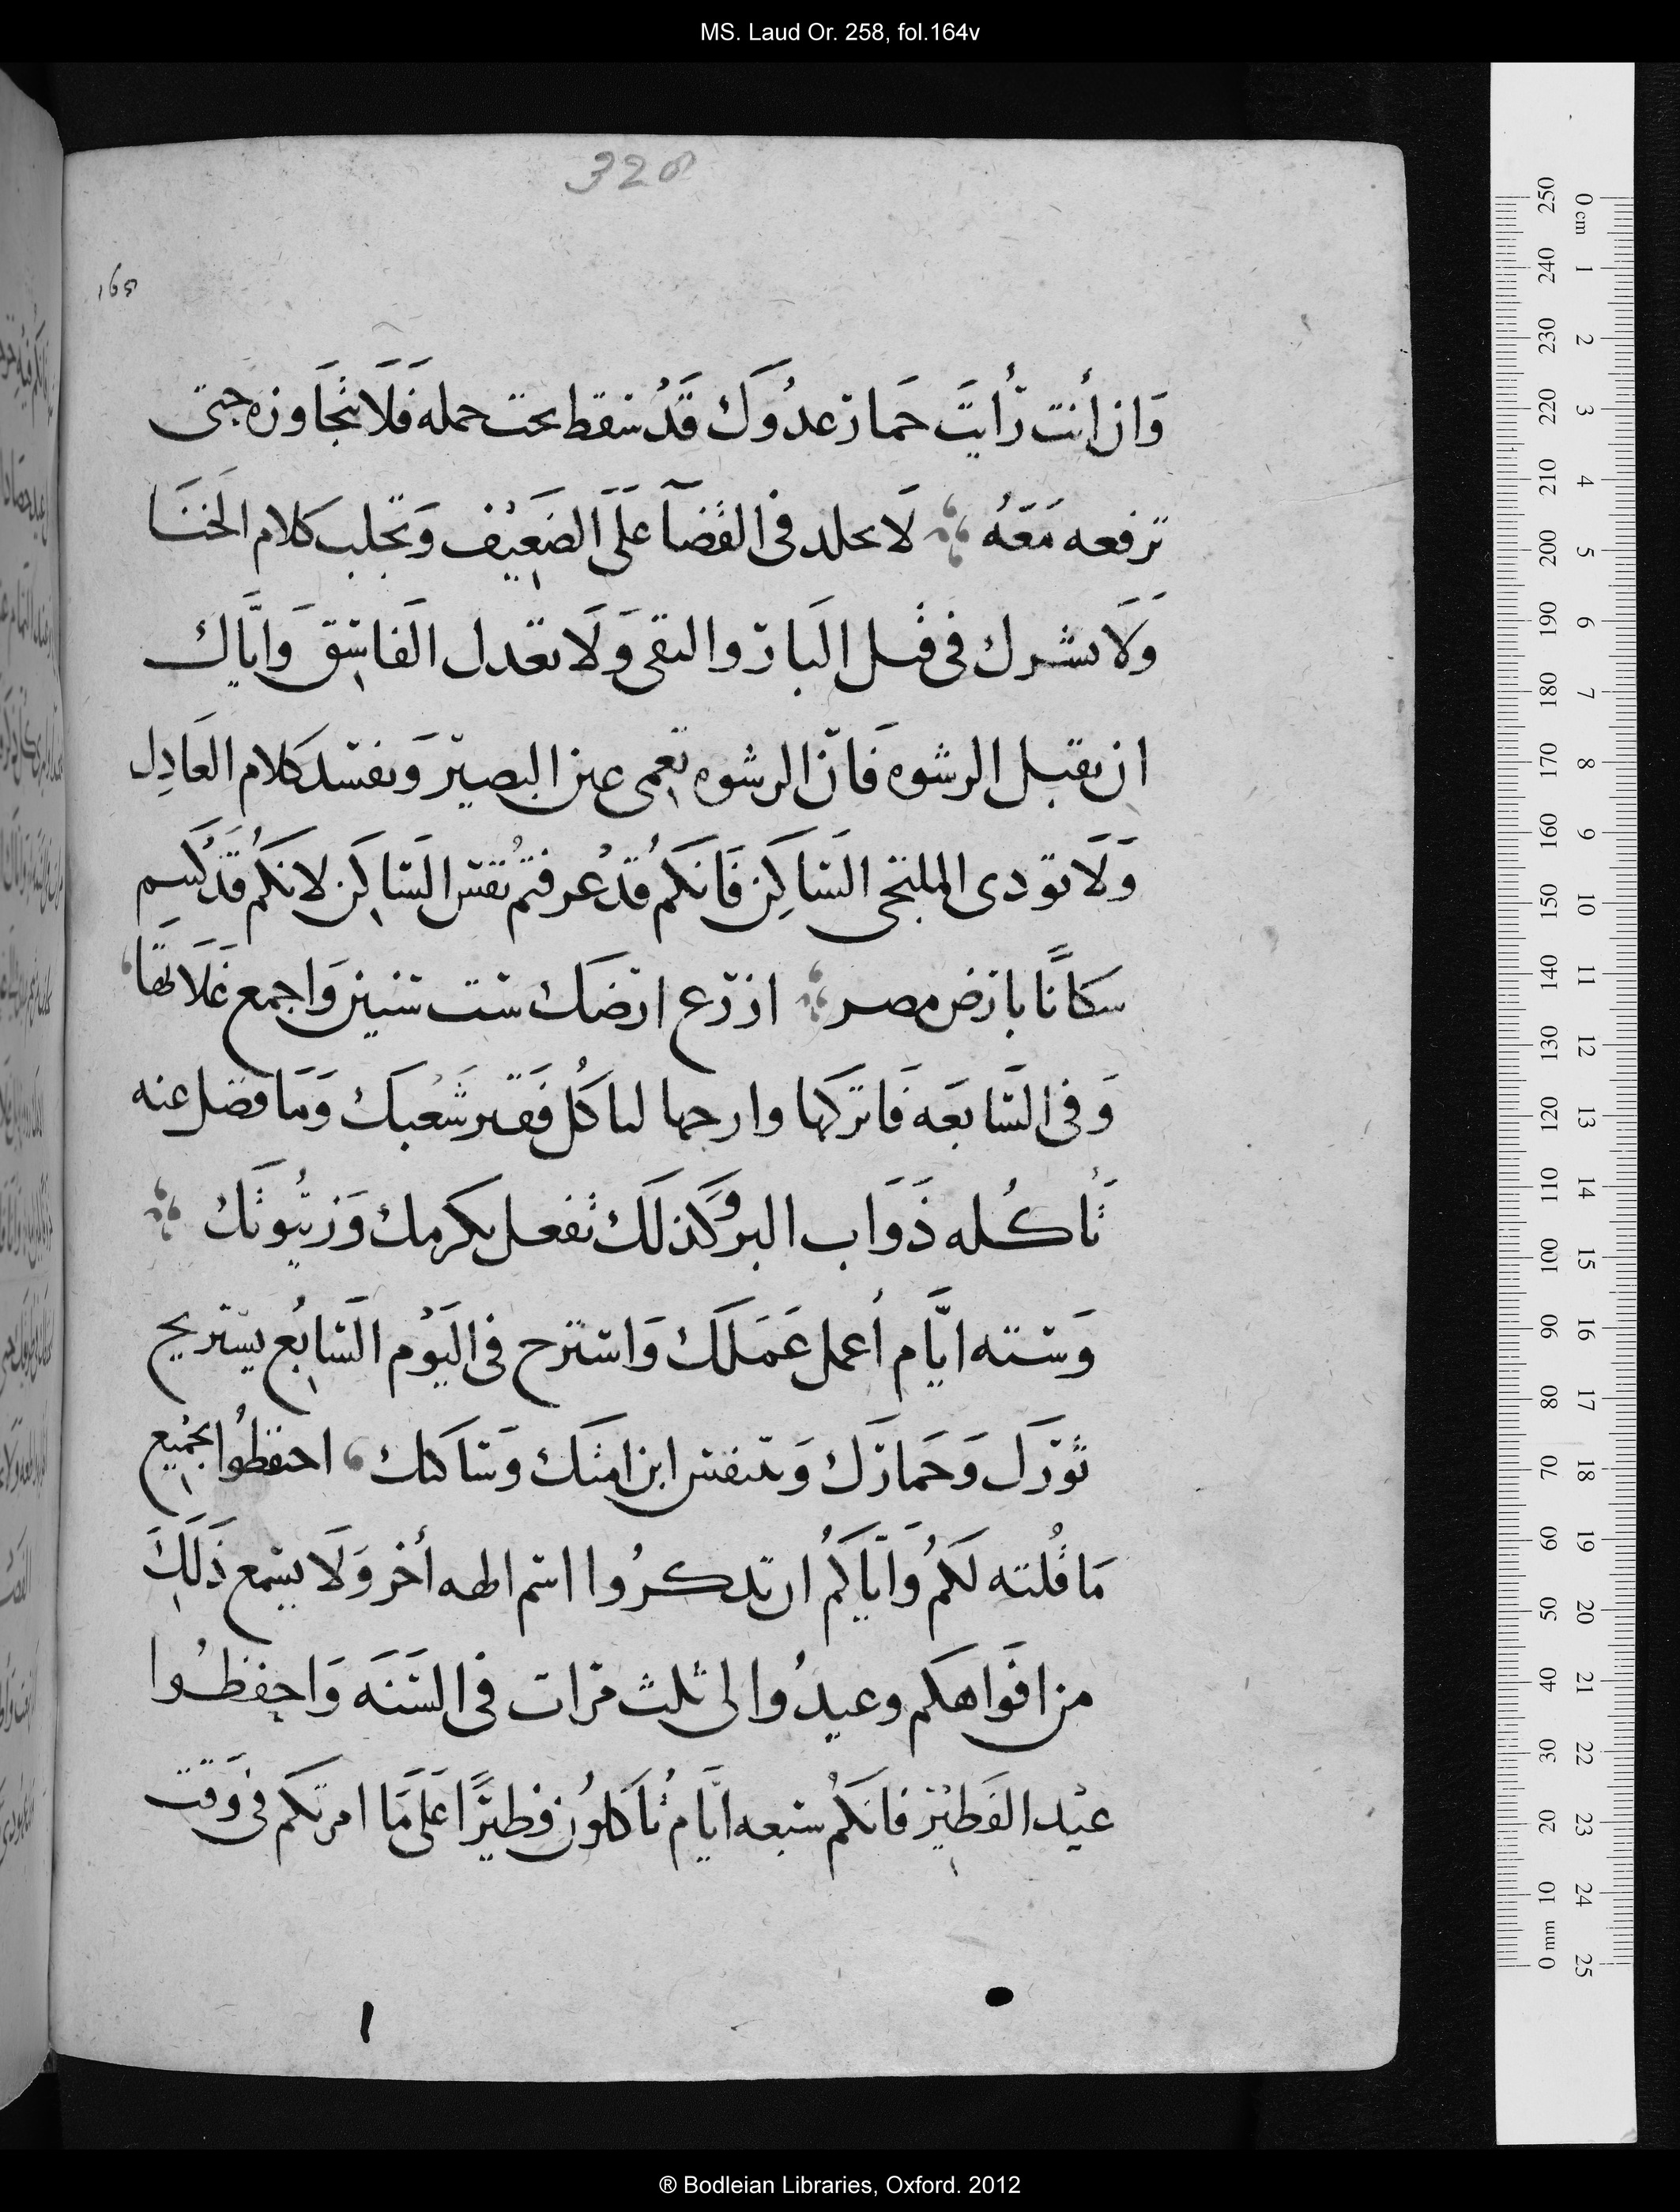 MS. Laud Or. 258, fol.164v
328
165
وَان أنت رَأيتَ حمَار عدُوَك قَدُ سقط تحت حمله فَلَا تتجَاوزه حتى
ترفعه مَعَهُ لَا تحلد فى القضآ علَى الضَعيْف وَتجلب كلام الخنَا
وَلَا تشرك فى قتل البَار والتقى وَلَا تعَدل الفاسِق وَايَّاك
ان تقبل الرشوه فَانّ الرشوه تعمى عين البصيرَ وَتفسد كلام العَادِل
وَلَا توَدى الملتجى السَاكِن فَانكم قدْ عرفتمُ نفس السَاكِن لانكمُ قَدْ كنتم
سكانًا بارض مصر ازرع ارضَك ست سنين وَاجمع غَلَاتهَا
وَفى السَابعَه فَاتركها وارحها لياكُل فَقير شَعْبَك وَمَا فضل عنه
تُاكُله دَوَاب البر وَكَذلَك تفعل بكرمك وَزيتُونَك
وَسته ايَّام أعمل عَمَلَك وَاسترح فى اليَوْم السَابُع يستريح
ثورَك وَحَمارَك وَيتنفس ابن امتك وَسَاكنك احفظُوا بجميْع
مَا قُلته لكمُ وَايَاكمُ ان تدكرُوا اسم الهه أخر وَلَا يسَمع ذَلَكَ
من افوَاهكم وعيدُوا لى ثلث مرّات فى السَنَه وَاحفظُوا
عيْد الفَطيْر فانكمُ سبعه ايَّام تُاكلوُن فطيرًا عَلَى مَا امرتكم فى وَقت
® Bodleian Libraries, Oxford. 2012